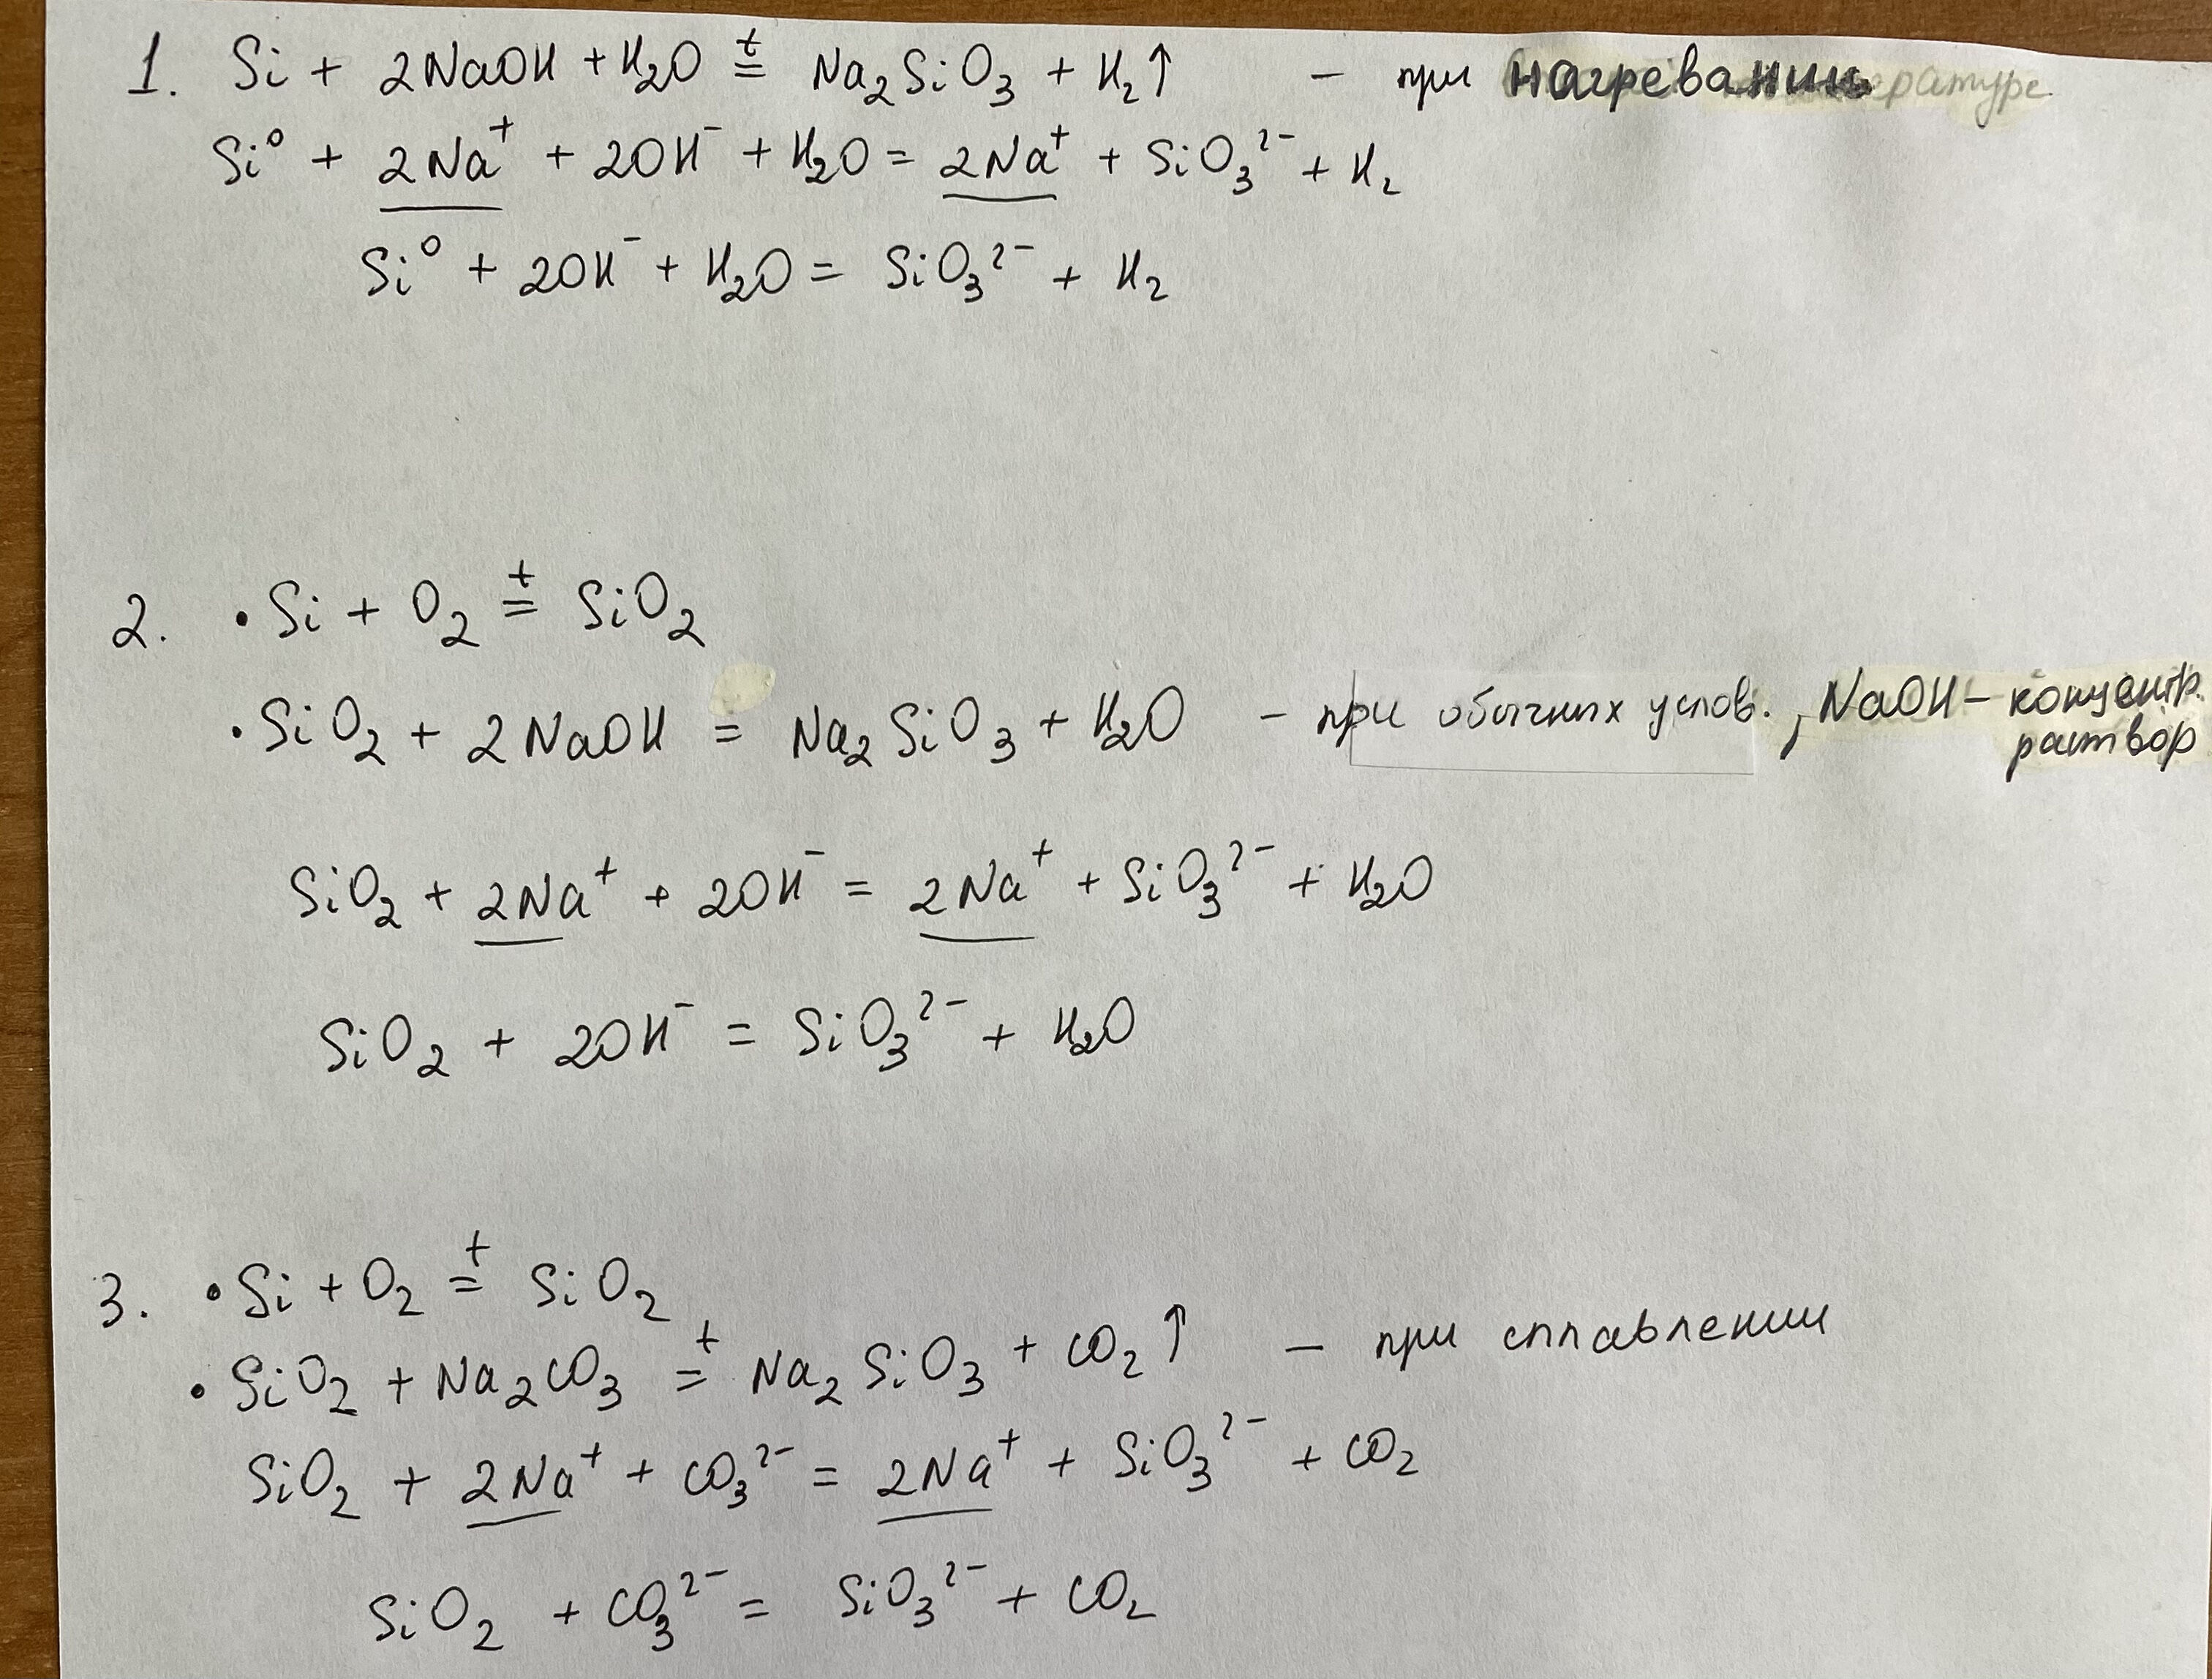 1. Si + 2NaOH + H₂O =ᵗ Na₂SiO₃ + H₂↑ – при нагревании
Si⁰ + 2Na⁺ + 2OH⁻ + H₂O = 2Na⁺ + SiO₃²⁻ + H₂
Si⁰ + 2OH⁻ + H₂O = SiO₃²⁻ + H₂
2. • Si + O₂ =ᵗ SiO₂
• SiO₂ + 2NaOH = Na₂SiO₃ + H₂O – при обычных услов., NaOH – концентр.
раствор
SiO₂ + 2Na⁺ + 2OH⁻ = 2Na⁺ + SiO₃²⁻ + H₂O
SiO₂ + 2OH⁻ = SiO₃²⁻ + H₂O
3. • Si + O₂ =ᵗ SiO₂
• SiO₂ + Na₂CO₃ =ᵗ Na₂SiO₃ + CO₂↑ – при сплавлении
SiO₂ + 2Na⁺ + CO₃²⁻ = 2Na⁺ + SiO₃²⁻ + CO₂
SiO₂ + CO₃²⁻ = SiO₃²⁻ + CO₂